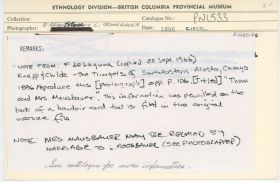 ETHNOLOGY DIVISION—BRITISH COLUMBIA PROVINCIAL MUSEUM
Collection: Catalogue No.: PN1533
Photographer: Date: 1896 circa
REMARKS:
"NOTE FROM F deLaguna (copied 22 Sept 1966)
Knapp & Childe - The Thlingets of Southeastern Alaska, Chicago
1896 reproduce this [photograph] opp. p. 106 "Thom
and Mrs Mausbauer." This information was pencilled on the
back of a boudoir card that is filed in the original
source file
NOTE MRS MAUSBAUER MAY BE RELATED BY
MARRIAGE TO (SEE PHOTOGRAPHER)
See catalogue for more information.